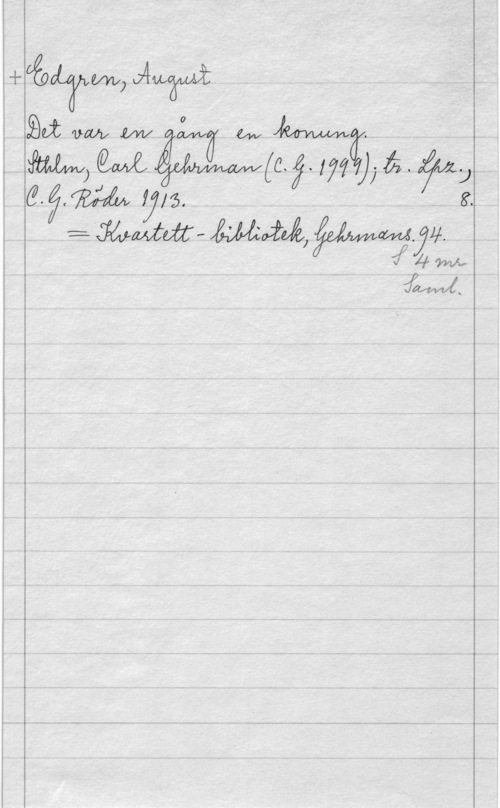 + Edgren, August
Det var en gång en konung.
Sthlm, Carl Gehrman (C. G. 1999); tr. Lpz.,
C. G. Röder 1913. 8.
= Kvartett-bibliotek, Gehrmans. 94.
S 4 mr
Saml.